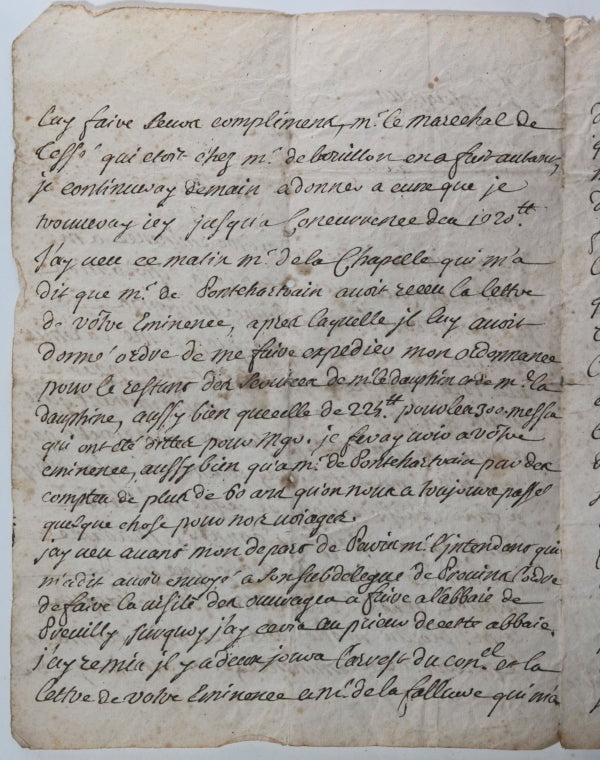 luy faire leurs compliment, mr. le marechal de
Tessé qui etoit chez mr. de bouillon en a fait autant,
je continueray demain a donner a ceux que je
trouveray icy jusqu'a Concurrence des 1020tt.
J'ay veu ce matin mr. de la Chapelle qui m'a
dit que mr. de Pontchartrain avoit receu la lettre
de vôtre Eminence, apres laquelle jl luy avoit
donné ordre de me faire expedier mon ordonnance
pour le restant des services de mr. le dauphin et de me. la
dauphine, aussy bien que celle de 225tt. pour les 300. messes
qui ont été dittes pour Mgr. je feray voir a vôtre
eminence, aussy bien qu'a mr. de Pontchartrain par des
comptes de plus de 60 ans qu'on nous a toujours passé
quelque chose pour nos voiages.
j'ay veu avant mon depart de Paris mr. l'intendant qui
m'a dit avoir envoyé a son subdelegué de Provins l'ordre
de faire la visite des ouvrages a faire a l'abbaie de
Preuilly, surquoy j'ay ecrit au prieur de cette abbaie.
j'ay remis il y a deux jours l'arrest du con.el et la
lettre de votre Eminence a mr. de la falluere qui m'a